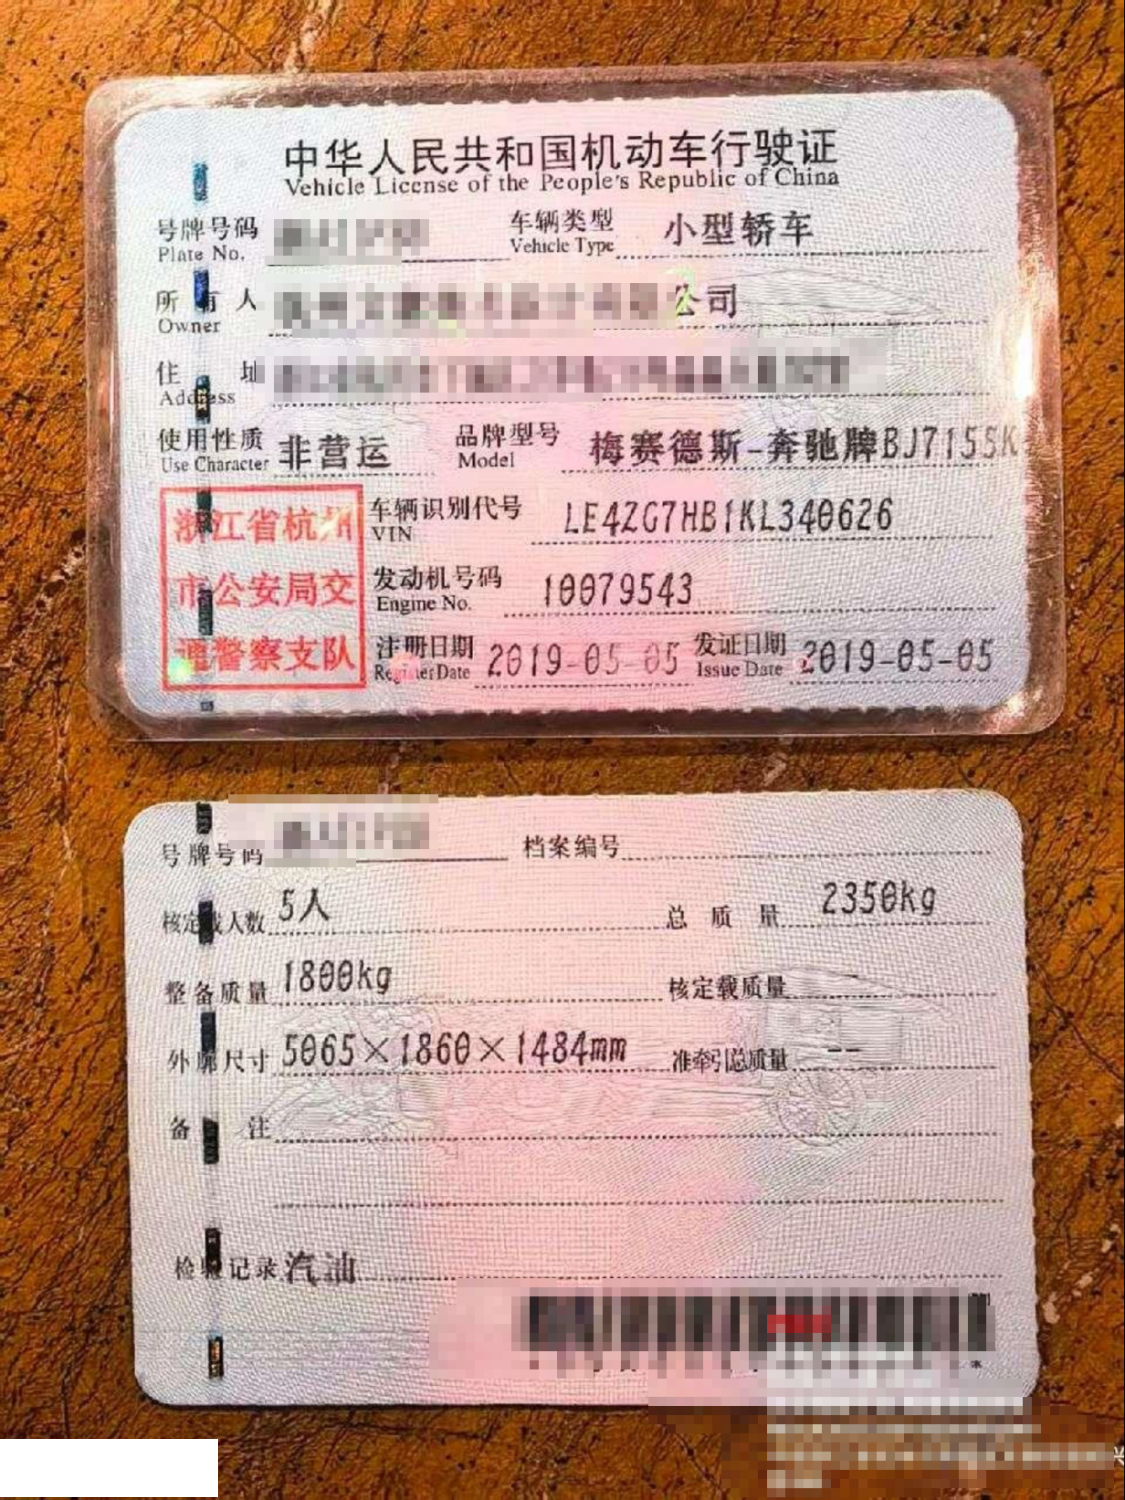 中华人民共和国机动车行驶证
Vehicle License of the People's Republic of China
号牌号码 车辆类型 小型轿车
Plate No. Vehicle Type
所有人 公司
Owner
住址
Address
使用性质 非营运 品牌型号 梅赛德斯-奔驰牌BJ7155K
Use Character Model
浙江省杭州 车辆识别代号 LE4ZG7HB1KL340626
VIN
市公安局交 发动机号码 10079543
Engine No.
通警察支队 注册日期 2019-05-05 发证日期 2019-05-05
Register Date Issue Date
号牌号码 档案编号
核定载人数 5人 总质量 2350kg
整备质量 1800kg 核定载质量 --
外廓尺寸 5065×1860×1484mm 准牵引总质量 --
备注
检验记录 汽油